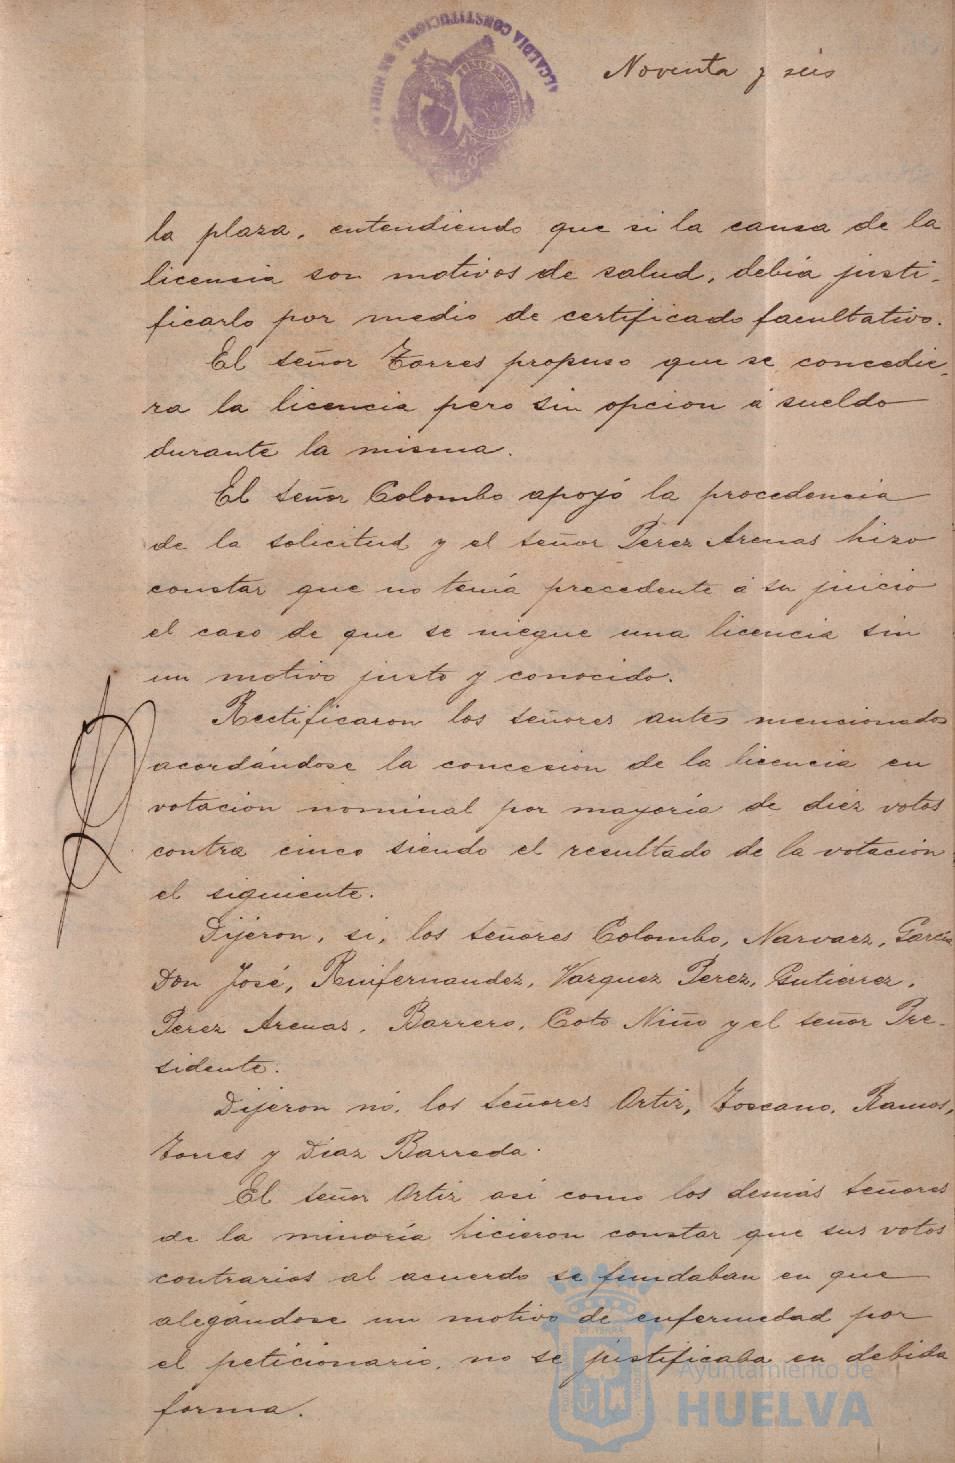 ALCALDIA CONSTITUCIONAL DE HUELVA
Noventa y seis
la plaza, entendiendo que si la causa de la
licencia son motivos de salud, debia justi-
ficarlo por medio de certificado facultativo.
El señor Torres propuso que se concedie-
ra la licencia pero sin opcion á sueldo
durante la misma.
El señor Colombo apoyó la procedencia
de la solicitud y el señor Perez Arenas hizo
constar que no tenía precedente á su juicio
el caso de que se niegue una licencia sin
un motivo justo y conocido.
Rectificaron los señores antes mencionados
acordándose la concesion de la licencia en
votación nominal por mayoría de diez votos
contra cinco siendo el resultado de la votacion
el siguiente.
Dijeron, si, los señores Colombo, Narvaez, García
Don José, Ruifernandez, Vazquez Perez, Gutiérrez,
Perez Arenas, Barrero, Coto Niño y el señor Pre-
sidente.
Dijeron no, los señores Ortiz, Toscano, Ramos,
Torres y Díaz Barreda.
El señor Ortiz asi como los demás señores
de la minoría hicieron constar que sus votos
contrarios al acuerdo se fundaban en que
alegándose un motivo de enfermedad por
el peticionario, no se justificaba en debida
forma.
Ayuntamiento de
HUELVA